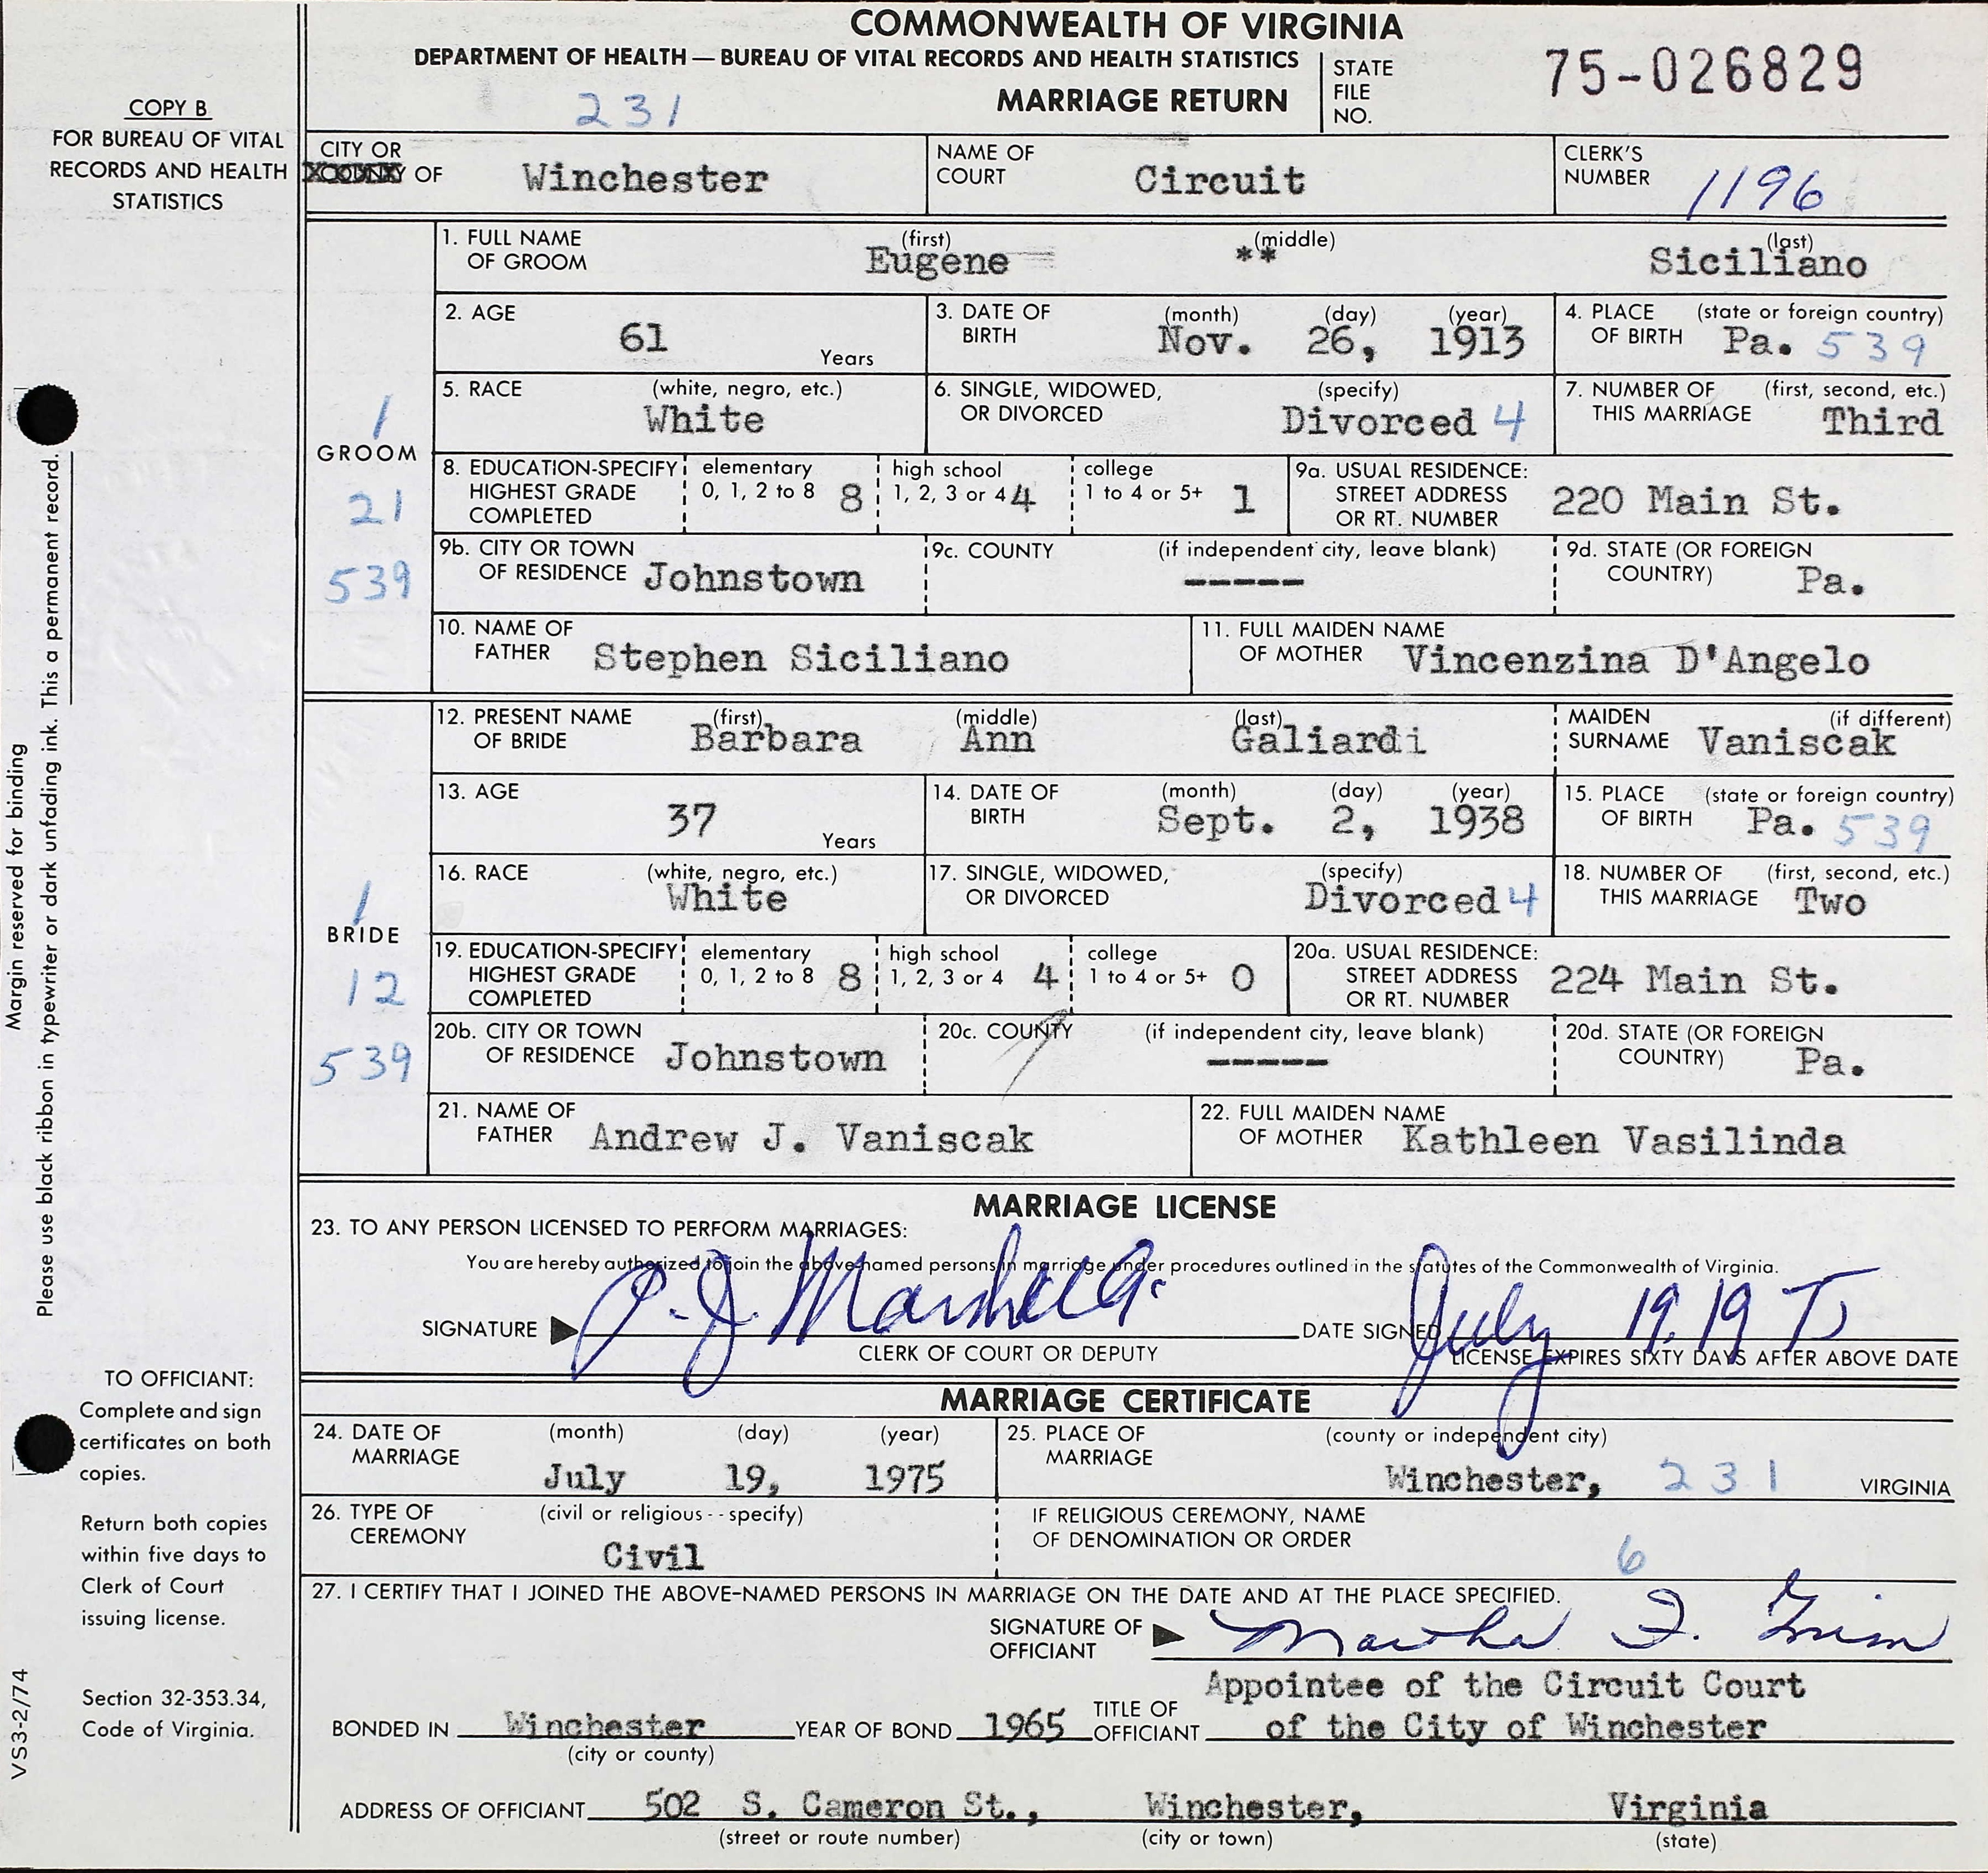 COMMONWEALTH OF VIRGINIA
DEPARTMENT OF HEALTH — BUREAU OF VITAL RECORDS AND HEALTH STATISTICS
231 MARRIAGE RETURN
STATE FILE NO. 75-026829
COPY B
FOR BUREAU OF VITAL
RECORDS AND HEALTH
STATISTICS
CITY OR
COUNTY OF Winchester
NAME OF COURT Circuit
CLERK'S NUMBER 1196
1. FULL NAME OF GROOM (first) Eugene (middle) ** (last) Siciliano
2. AGE 61 Years
3. DATE OF BIRTH (month) Nov. (day) 26, (year) 1913
4. PLACE OF BIRTH (state or foreign country) Pa. 539
5. RACE (white, negro, etc.) White
6. SINGLE, WIDOWED, OR DIVORCED (specify) Divorced 4
7. NUMBER OF THIS MARRIAGE (first, second, etc.) Third
1
GROOM
21
539
8. EDUCATION-SPECIFY HIGHEST GRADE COMPLETED elementary 0, 1, 2 to 8 8 high school 1, 2, 3 or 4 4 college 1 to 4 or 5+ 1
9a. USUAL RESIDENCE: STREET ADDRESS OR RT. NUMBER 220 Main St.
9b. CITY OR TOWN OF RESIDENCE Johnstown
9c. COUNTY (if independent city, leave blank) -----
9d. STATE (OR FOREIGN COUNTRY) Pa.
10. NAME OF FATHER Stephen Siciliano
11. FULL MAIDEN NAME OF MOTHER Vincenzina D'Angelo
12. PRESENT NAME OF BRIDE (first) Barbara (middle) Ann (last) Galiardi
MAIDEN SURNAME (if different) Vaniscak
13. AGE 37 Years
14. DATE OF BIRTH (month) Sept. (day) 2, (year) 1938
15. PLACE OF BIRTH (state or foreign country) Pa. 539
16. RACE (white, negro, etc.) White
17. SINGLE, WIDOWED, OR DIVORCED (specify) Divorced 4
18. NUMBER OF THIS MARRIAGE (first, second, etc.) Two
1
BRIDE
12
539
19. EDUCATION-SPECIFY HIGHEST GRADE COMPLETED elementary 0, 1, 2 to 8 8 high school 1, 2, 3 or 4 4 college 1 to 4 or 5+ 0
20a. USUAL RESIDENCE: STREET ADDRESS OR RT. NUMBER 224 Main St.
20b. CITY OR TOWN OF RESIDENCE Johnstown
20c. COUNTY (if independent city, leave blank) -----
20d. STATE (OR FOREIGN COUNTRY) Pa.
21. NAME OF FATHER Andrew J. Vaniscak
22. FULL MAIDEN NAME OF MOTHER Kathleen Vasilinda
MARRIAGE LICENSE
23. TO ANY PERSON LICENSED TO PERFORM MARRIAGES:
You are hereby authorized to join the above-named persons in marriage under procedures outlined in the statutes of the Commonwealth of Virginia.
SIGNATURE DATE SIGNED July 19, 1975
CLERK OF COURT OR DEPUTY
LICENSE EXPIRES SIXTY DAYS AFTER ABOVE DATE
MARRIAGE CERTIFICATE
24. DATE OF MARRIAGE (month) July (day) 19, (year) 1975
25. PLACE OF MARRIAGE (county or independent city) Winchester, 231 VIRGINIA
26. TYPE OF CEREMONY (civil or religious -- specify) Civil
IF RELIGIOUS CEREMONY, NAME OF DENOMINATION OR ORDER 6
27. I CERTIFY THAT I JOINED THE ABOVE-NAMED PERSONS IN MARRIAGE ON THE DATE AND AT THE PLACE SPECIFIED.
SIGNATURE OF OFFICIANT Martha
BONDED IN Winchester (city or county)
YEAR OF BOND 1965
TITLE OF OFFICIANT Appointee of the Circuit Court
of the City of Winchester
ADDRESS OF OFFICIANT 502 S. Cameron St., Winchester, Virginia
(street or route number) (city or town) (state)
Margin reserved for binding
Please use black ribbon in typewriter or dark unfading ink. This a permanent record.
TO OFFICIANT:
Complete and sign
certificates on both
copies.
Return both copies
within five days to
Clerk of Court
issuing license.
Section 32-353.34,
Code of Virginia.
VS3-2/74